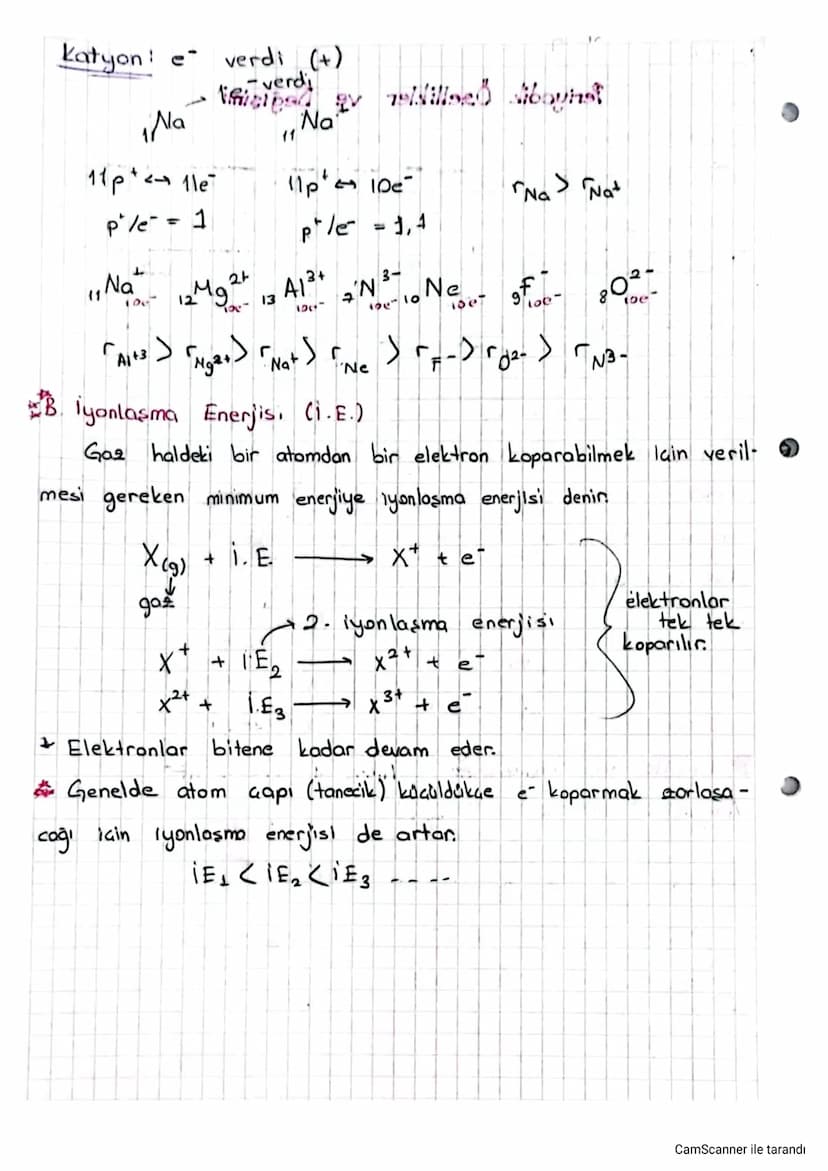 Katyon: e⁻ verdi (+)
1e⁻ verdi
₁₁Na → ₁₁Na⁺
11p⁺ ↔ 11e⁻ 11p⁺ ↔ 10e⁻ rNa > rNa⁺
p⁺/e⁻ = 1 p⁺/e⁻ = 1,1
₁₁Na⁺ ₁₂Mg²⁺ ₁₃Al³⁺ ₇N³⁻ ₁₀Ne ₉F⁻ ₈O²⁻
10e⁻ 10e⁻ 10e⁻ 10e⁻ 10e⁻ 10e⁻ 10e⁻
rAl⁺³ > rMg²⁺ > rNa⁺ > rNe > rF⁻ > rO²⁻ > rN³⁻
B. İyonlaşma Enerjisi (İ.E.)
Gaz haldeki bir atomdan bir elektron koparabilmek için veril-
mesi gereken minimum enerjiye iyonlaşma enerjisi denir.
X(g) + İ.E. → X⁺ + e⁻
gaz
elektronlar
tek tek
koparılır.
2. iyonlaşma enerjisi
X⁺ + İE₂ → X²⁺ + e⁻
X²⁺ + İ.E₃ → X³⁺ + e⁻
* Elektronlar bitene kadar devam eder.
* Genelde atom çapı (tanecik) küçüldükçe e⁻ koparmak zorlaşa-
cağı için iyonlaşma enerjisi de artar.
İE₁ < İE₂ < İE₃ ....
CamScanner ile tarandı